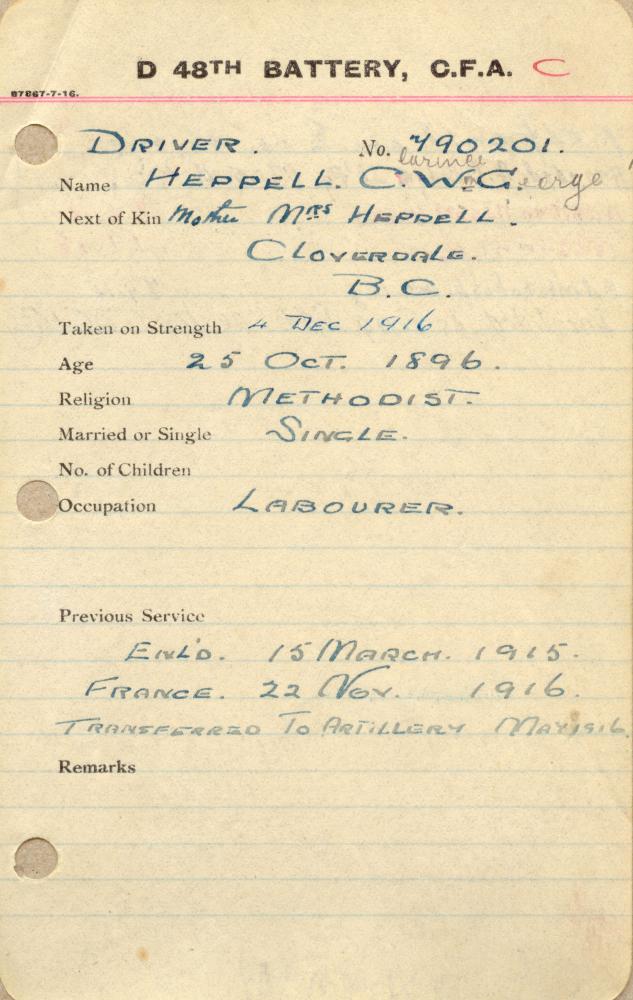 D 48TH BATTERY, C.F.A. C
87867-7-16.
DRIVER. No. 790201.
larence
Name HEPPELL. C. Wm G. eorge
Next of Kin Mother Mrs HEPPELL.
CLOVERDALE.
B.C.
Taken on Strength 4 DEC 1916
Age 25 OCT. 1896.
Religion METHODIST.
Married or Single SINGLE.
No. of Children
Occupation LABOURER.
Previous Service
ENL'D. 15 MARCH. 1915.
FRANCE. 22 NOV. 1916.
TRANSFERRED TO ARTILLERY MAY 1916.
Remarks